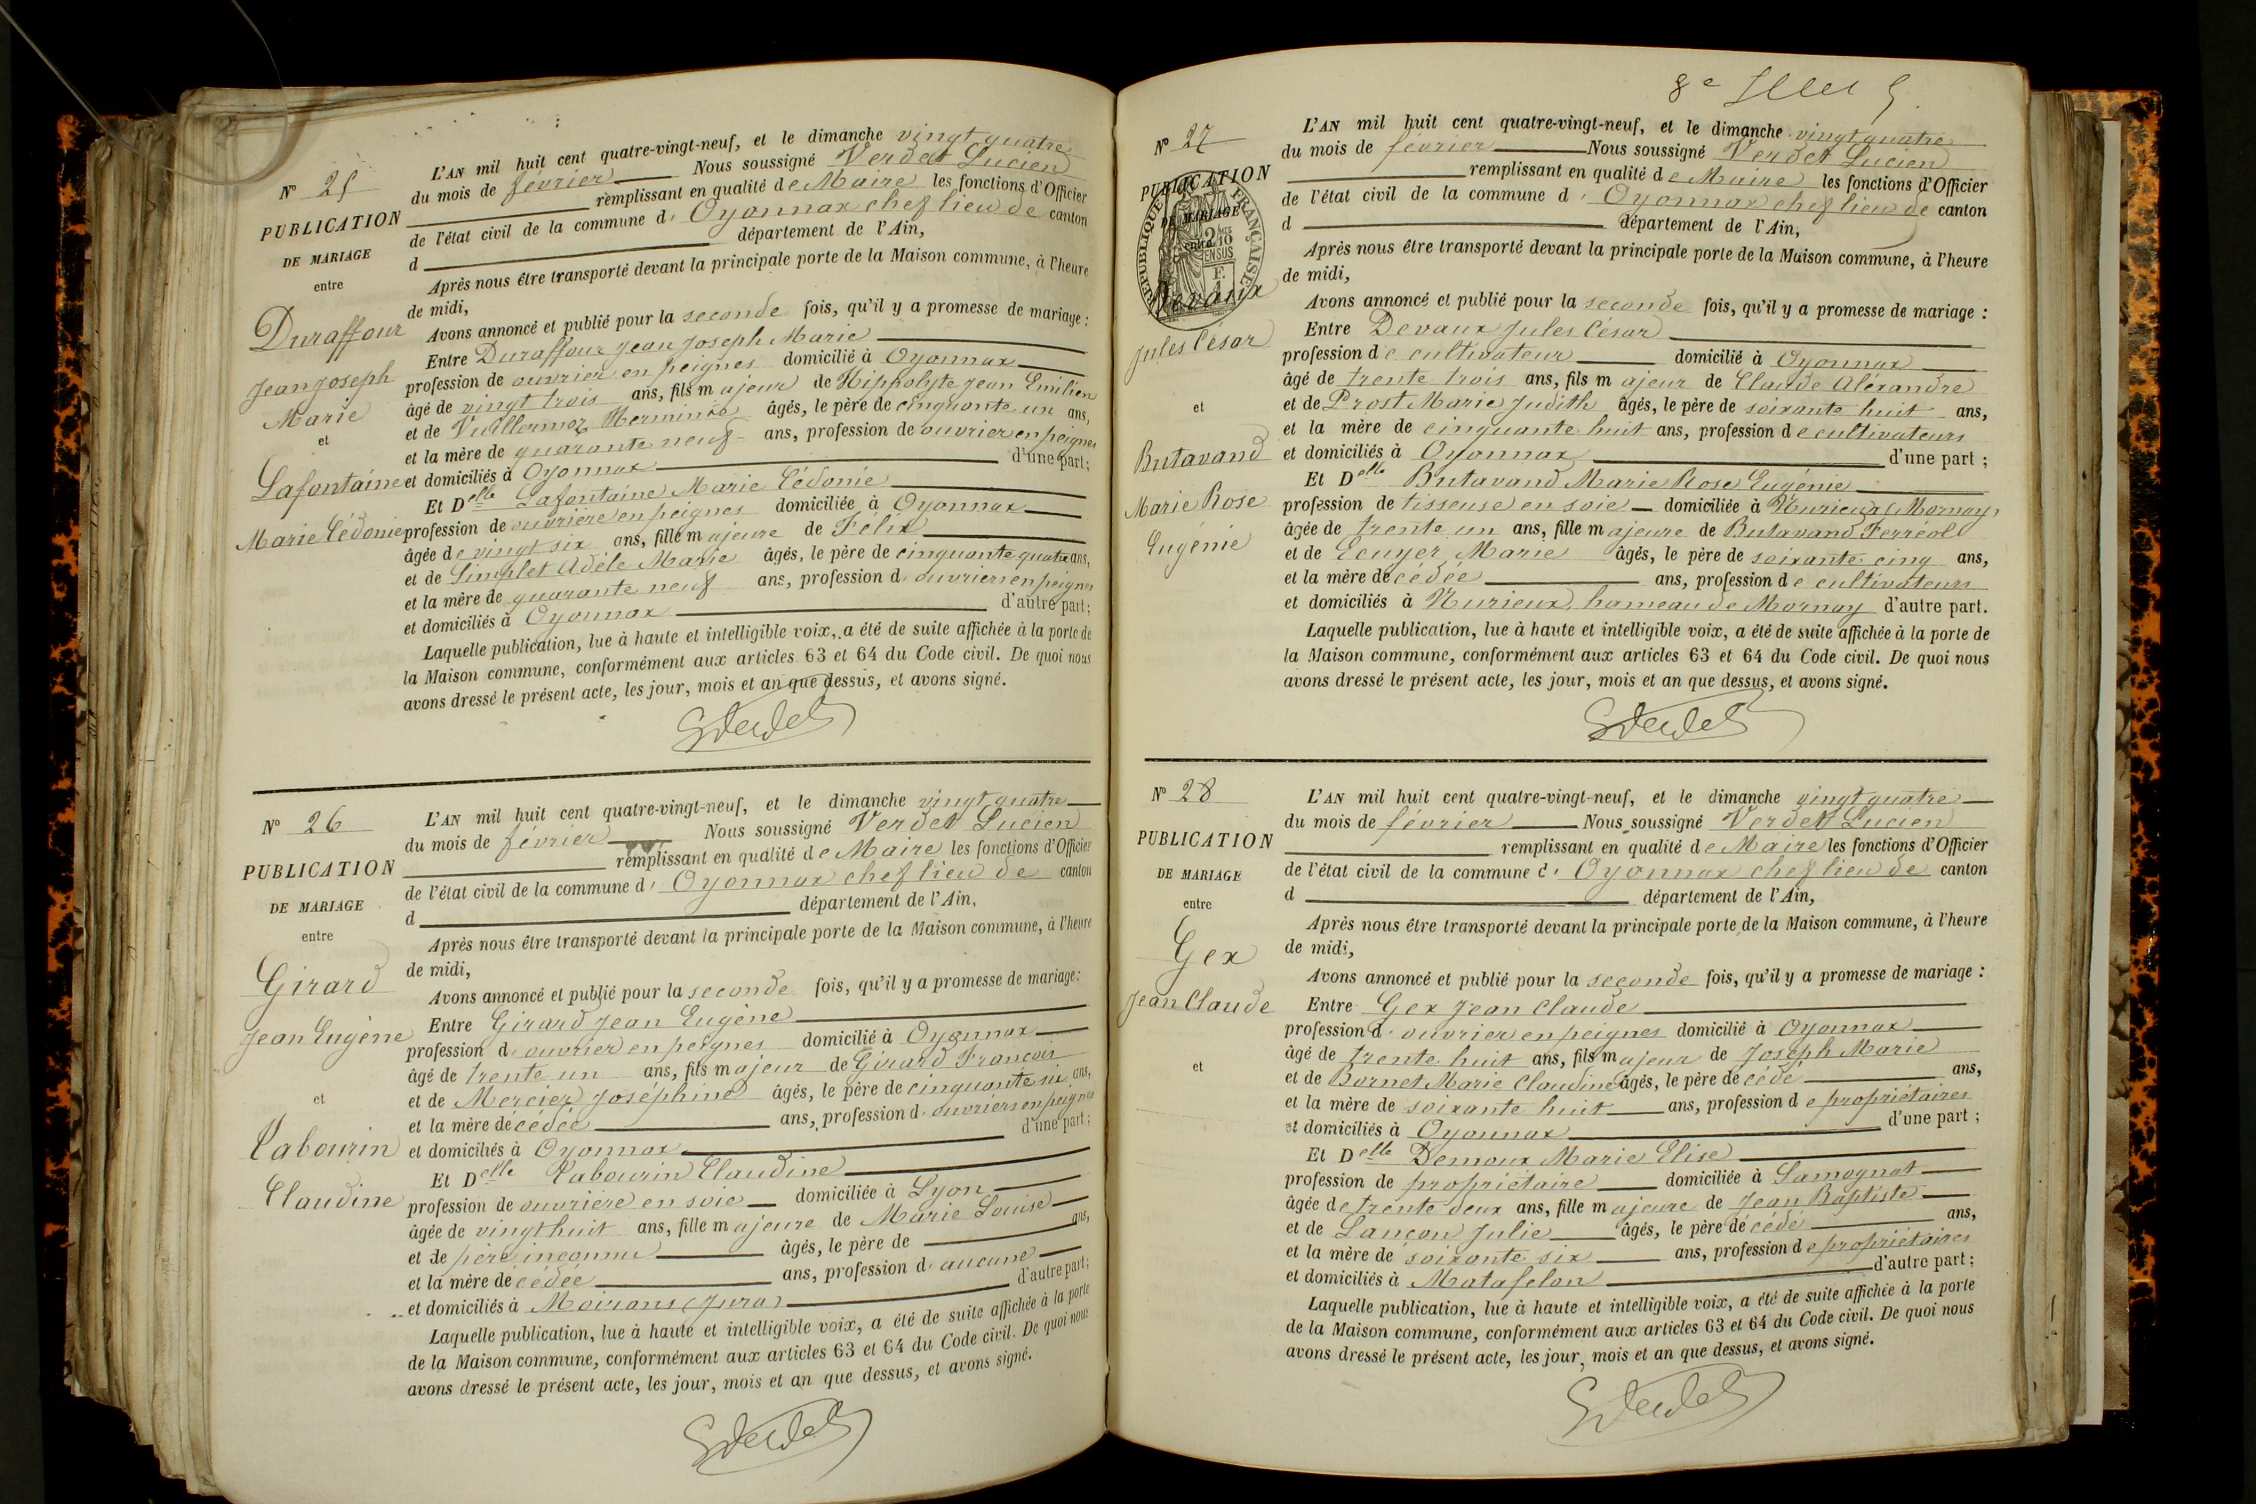 N° 25
PUBLICATION
DE MARIAGE
entre
Duraffour
Jean Joseph
Marie
et
Lafontaine
Marie Cédonie
L'AN mil huit cent quatre-vingt-neuf, et le dimanche vingt quatre
du mois de février Nous soussigné Verdet Lucien
remplissant en qualité de Maire les fonctions d'Officier
de l'état civil de la commune d' Oyonnax chef lieu de canton
d département de l'Ain,
Après nous être transporté devant la principale porte de la Maison commune, à l'heure
de midi,
Avons annoncé et publié pour la seconde fois, qu'il y a promesse de mariage :
Entre Duraffour Jean Joseph Marie
profession de ouvrier en peignes domicilié à Oyonnax
âgé de vingt trois ans, fils majeur de Hippolyte Jean Emilien
et de Vuillermoz Herminie âgés, le père de cinquante un ans,
et la mère de quarante neuf ans, profession de ouvrier en peignes
et domiciliés à Oyonnax d'une part ;
Et Delle Lafontaine Marie Cédonie
profession de ouvrière en peignes domiciliée à Oyonnax
âgée de vingt six ans, fille majeure de Félix
et de Simplet Adèle Marie âgés, le père de cinquante quatre ans,
et la mère de quarante neuf ans, profession d' ouvriers en peignes
et domiciliés à Oyonnax d'autre part ;
Laquelle publication, lue à haute et intelligible voix, a été de suite affichée à la porte de
la Maison commune, conformément aux articles 63 et 64 du Code civil. De quoi nous
avons dressé le présent acte, les jour, mois et an que dessus, et avons signé.
N° 26
PUBLICATION
DE MARIAGE
entre
Girard
Jean Eugène
et
Cabourin
Claudine
L'AN mil huit cent quatre-vingt-neuf, et le dimanche vingt quatre
du mois de février Nous soussigné Verdet Lucien
remplissant en qualité de Maire les fonctions d'Officier
de l'état civil de la commune d' Oyonnax chef lieu de canton
d département de l'Ain,
Après nous être transporté devant la principale porte de la Maison commune, à l'heure
de midi,
Avons annoncé et publié pour la seconde fois, qu'il y a promesse de mariage :
Entre Girard Jean Eugène
profession d' ouvrier en peignes domicilié à Oyonnax
âgé de trente un ans, fils majeur de Girard François
et de Mercier Joséphine âgés, le père de cinquante six ans,
et la mère décédée ans, profession d' ouvriers en peignes
et domiciliés à Oyonnax d'une part ;
Et Delle Cabourin Claudine
profession de ouvrière en soie domiciliée à Lyon
âgée de vingt huit ans, fille majeure de Marie Louise
et de père inconnu âgés, le père de ans,
et la mère décédée ans, profession d' aucune
et domiciliés à Moirans (Jura) d'autre part ;
Laquelle publication, lue à haute et intelligible voix, a été de suite affichée à la porte
de la Maison commune, conformément aux articles 63 et 64 du Code civil. De quoi nous
avons dressé le présent acte, les jour, mois et an que dessus, et avons signé.
8e
N° 27
PUBLICATION
DE MARIAGE
entre
RÉPUBLIQUE FRANÇAISE
Devaux
Jules César
et
Butavand
Marie Rose
Eugénie
L'AN mil huit cent quatre-vingt-neuf, et le dimanche vingt quatre
du mois de février Nous soussigné Verdet Lucien
remplissant en qualité de Maire les fonctions d'Officier
de l'état civil de la commune d' Oyonnax chef lieu de canton
d département de l'Ain,
Après nous être transporté devant la principale porte de la Maison commune, à l'heure
de midi,
Avons annoncé et publié pour la seconde fois, qu'il y a promesse de mariage :
Entre Devaux Jules César
profession de cultivateur domicilié à Oyonnax
âgé de trente trois ans, fils majeur de Claude Aléxandre
et de Prost Marie Judith âgés, le père de soixante huit ans,
et la mère de cinquante huit ans, profession de cultivateurs
et domiciliés à Oyonnax d'une part ;
Et Delle Butavand Marie Rose Eugénie
profession de tisseuse en soie domiciliée à Nurieux (Mornay)
âgée de trente un ans, fille majeure de Butavand Ferréol
et de Ecuyer Marie âgés, le père de soixante cinq ans,
et la mère décédée ans, profession de cultivateurs
et domiciliés à Nurieux, hameau de Mornay d'autre part.
Laquelle publication, lue à haute et intelligible voix, a été de suite affichée à la porte de
la Maison commune, conformément aux articles 63 et 64 du Code civil. De quoi nous
avons dressé le présent acte, les jour, mois et an que dessus, et avons signé.
N° 28
PUBLICATION
DE MARIAGE
entre
Gex
Jean Claude
et
L'AN mil huit cent quatre-vingt-neuf, et le dimanche vingt quatre
du mois de février Nous soussigné Verdet Lucien
remplissant en qualité de Maire les fonctions d'Officier
de l'état civil de la commune d' Oyonnax chef lieu de canton
d département de l'Ain,
Après nous être transporté devant la principale porte de la Maison commune, à l'heure
de midi,
Avons annoncé et publié pour la seconde fois, qu'il y a promesse de mariage :
Entre Gex Jean Claude
profession d' ouvrier en peignes domicilié à Oyonnax
âgé de trente huit ans, fils majeur de Joseph Marie
et de Bornet Marie Claudine âgés, le père décédé ans,
et la mère de soixante huit ans, profession de propriétaires
et domiciliés à Oyonnax d'une part ;
Et Delle Demoux Marie Elise
profession de propriétaire domiciliée à Samognat
âgée de trente deux ans, fille majeure de Jean Baptiste
et de Lançon Julie âgés, le père décédé ans,
et la mère de soixante six ans, profession de propriétaires
et domiciliés à Matafelon d'autre part ;
Laquelle publication, lue à haute et intelligible voix, a été de suite affichée à la porte
de la Maison commune, conformément aux articles 63 et 64 du Code civil. De quoi nous
avons dressé le présent acte, les jour, mois et an que dessus, et avons signé.